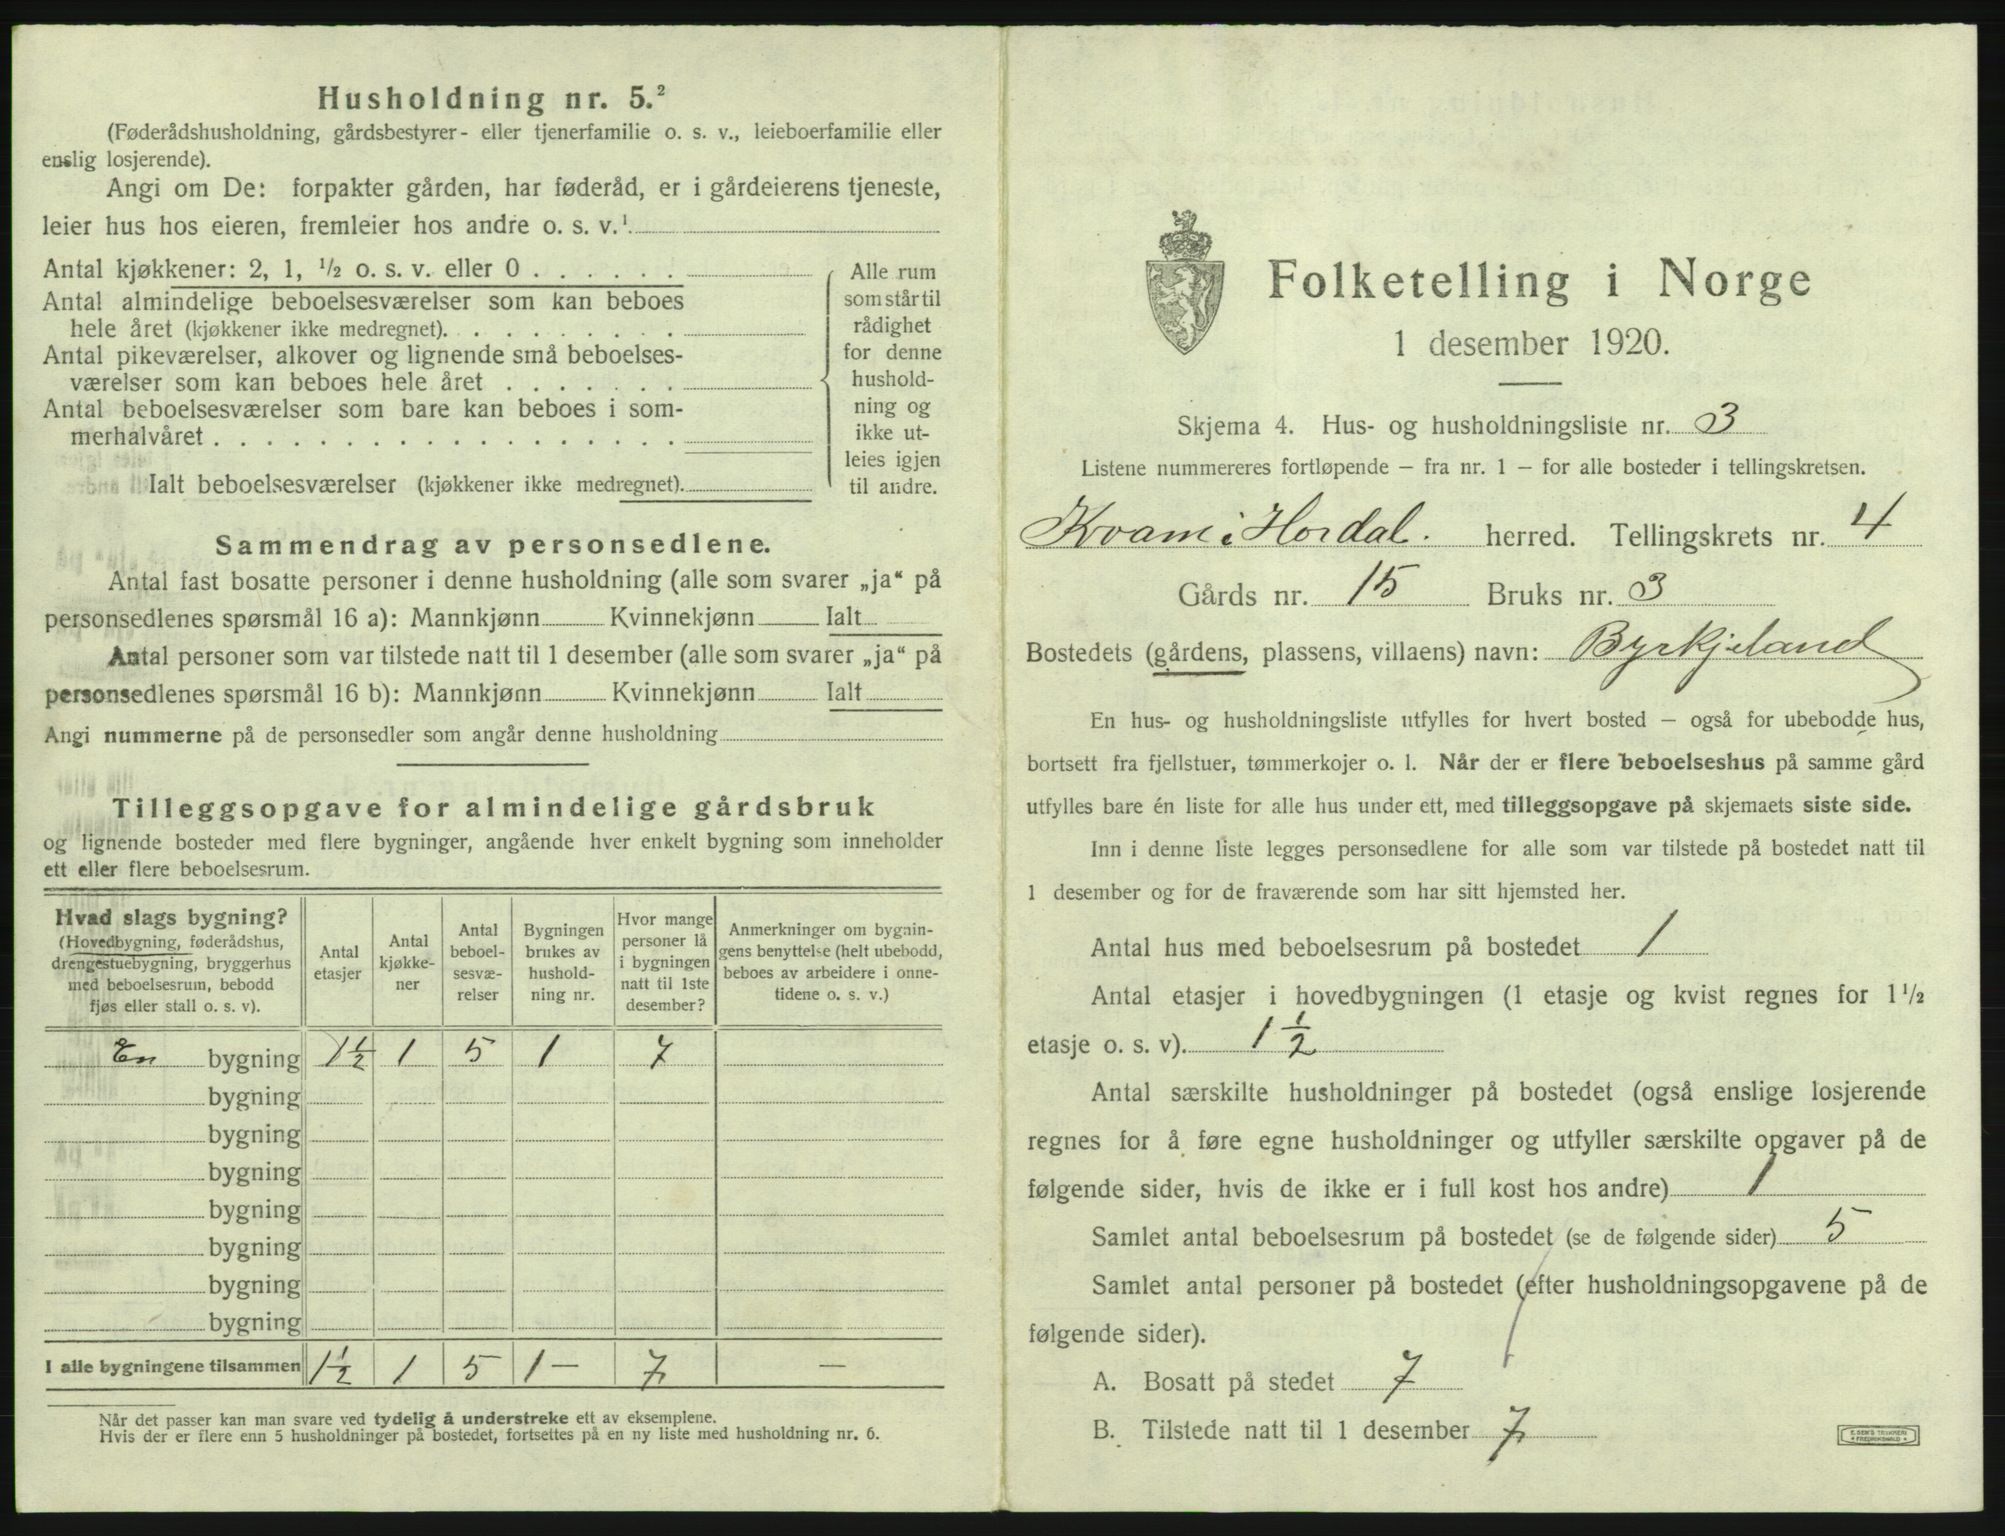 Husholdning nr. 5.²
(Føderådshusholdning, gårdsbestyrer- eller tjenerfamilie o. s. v., leieboerfamilie eller
enslig losjerende).
Angi om De: forpakter gården, har føderåd, er i gårdeierens tjeneste,
leier hus hos eieren, fremleier hos andre o. s. v.¹
Antal kjøkkener: 2, 1, ½ o. s. v. eller 0 . . . . . .
Antal almindelige beboelsesværelser som kan beboes
hele året (kjøkkener ikke medregnet). . . . . . . . .
Antal pikeværelser, alkover og lignende små beboelses-
værelser som kan beboes hele året . . . . . . .
Antal beboelsesværelser som bare kan beboes i som-
merhalvåret . . . . . . . . . . . . . . . . . .
Ialt beboelsesværelser (kjøkkener ikke medregnet).
Alle rum
som står til
rådighet
for denne
hushold-
ning og
ikke ut-
leies igjen
til andre.
Sammendrag av personsedlene.
Antal fast bosatte personer i denne husholdning (alle som svarer „ja“ på
personsedlenes spørsmål 16 a): Mannkjønn Kvinnekjønn Ialt
Antal personer som var tilstede natt til 1 desember (alle som svarer „ja“ på
personsedlenes spørsmål 16 b): Mannkjønn Kvinnekjønn Ialt
Angi nummerne på de personsedler som angår denne husholdning
Tilleggsopgave for almindelige gårdsbruk
og lignende bosteder med flere bygninger, angående hver enkelt bygning som inneholder
ett eller flere beboelsesrum.
Hvad slags bygning?
(Hovedbygning, føderådshus,
drengestuebygning, bryggerhus
med beboelsesrum, bebodd
fjøs eller stall o. s. v).
Antal
etasjer
Antal
kjøkke-
ner
Antal
beboel-
sesvæ-
relser
Bygningen
brukes av
hushold-
ning nr.
Hvor mange
personer lå
i bygningen
natt til 1ste
desember?
Anmerkninger om bygnin-
gens benyttelse (helt ubebodd,
beboes av arbeidere i onne-
tidene o. s. v.)
En bygning 1½ 1 5 1 7
bygning
bygning
bygning
bygning
bygning
bygning
bygning
I alle bygningene tilsammen 1½ 1 5 1 — 7 —
Når det passer kan man svare ved tydelig å understreke ett av eksemplene.
Hvis der er flere enn 5 husholdninger på bostedet, fortsettes på en ny liste med husholdning nr. 6.
Folketelling i Norge
1 desember 1920.
Skjema 4. Hus- og husholdningsliste nr. 3
Listene nummereres fortløpende – fra nr. 1 – for alle bosteder i tellingskretsen.
Kvam i Hordal. herred. Tellingskrets nr. 4
Gårds nr. 15 Bruks nr. 3
Bostedets (gårdens, plassens, villaens) navn: Byrkjeland
En hus- og husholdningsliste utfylles for hvert bosted – også for ubebodde hus,
bortsett fra fjellstuer, tømmerkojer o. l. Når der er flere beboelseshus på samme gård
utfylles bare én liste for alle hus under ett, med tilleggsopgave på skjemaets siste side.
Inn i denne liste legges personsedlene for alle som var tilstede på bostedet natt til
1 desember og for de fraværende som har sitt hjemsted her.
Antal hus med beboelsesrum på bostedet 1
Antal etasjer i hovedbygningen (1 etasje og kvist regnes for 1½
etasje o. s. v). 1½
Antal særskilte husholdninger på bostedet (også enslige losjerende
regnes for å føre egne husholdninger og utfyller særskilte opgaver på de
følgende sider, hvis de ikke er i full kost hos andre) 1
Samlet antal beboelsesrum på bostedet (se de følgende sider) 5
Samlet antal personer på bostedet (efter husholdningsopgavene på de
følgende sider).
A. Bosatt på stedet 7
B. Tilstede natt til 1 desember 7